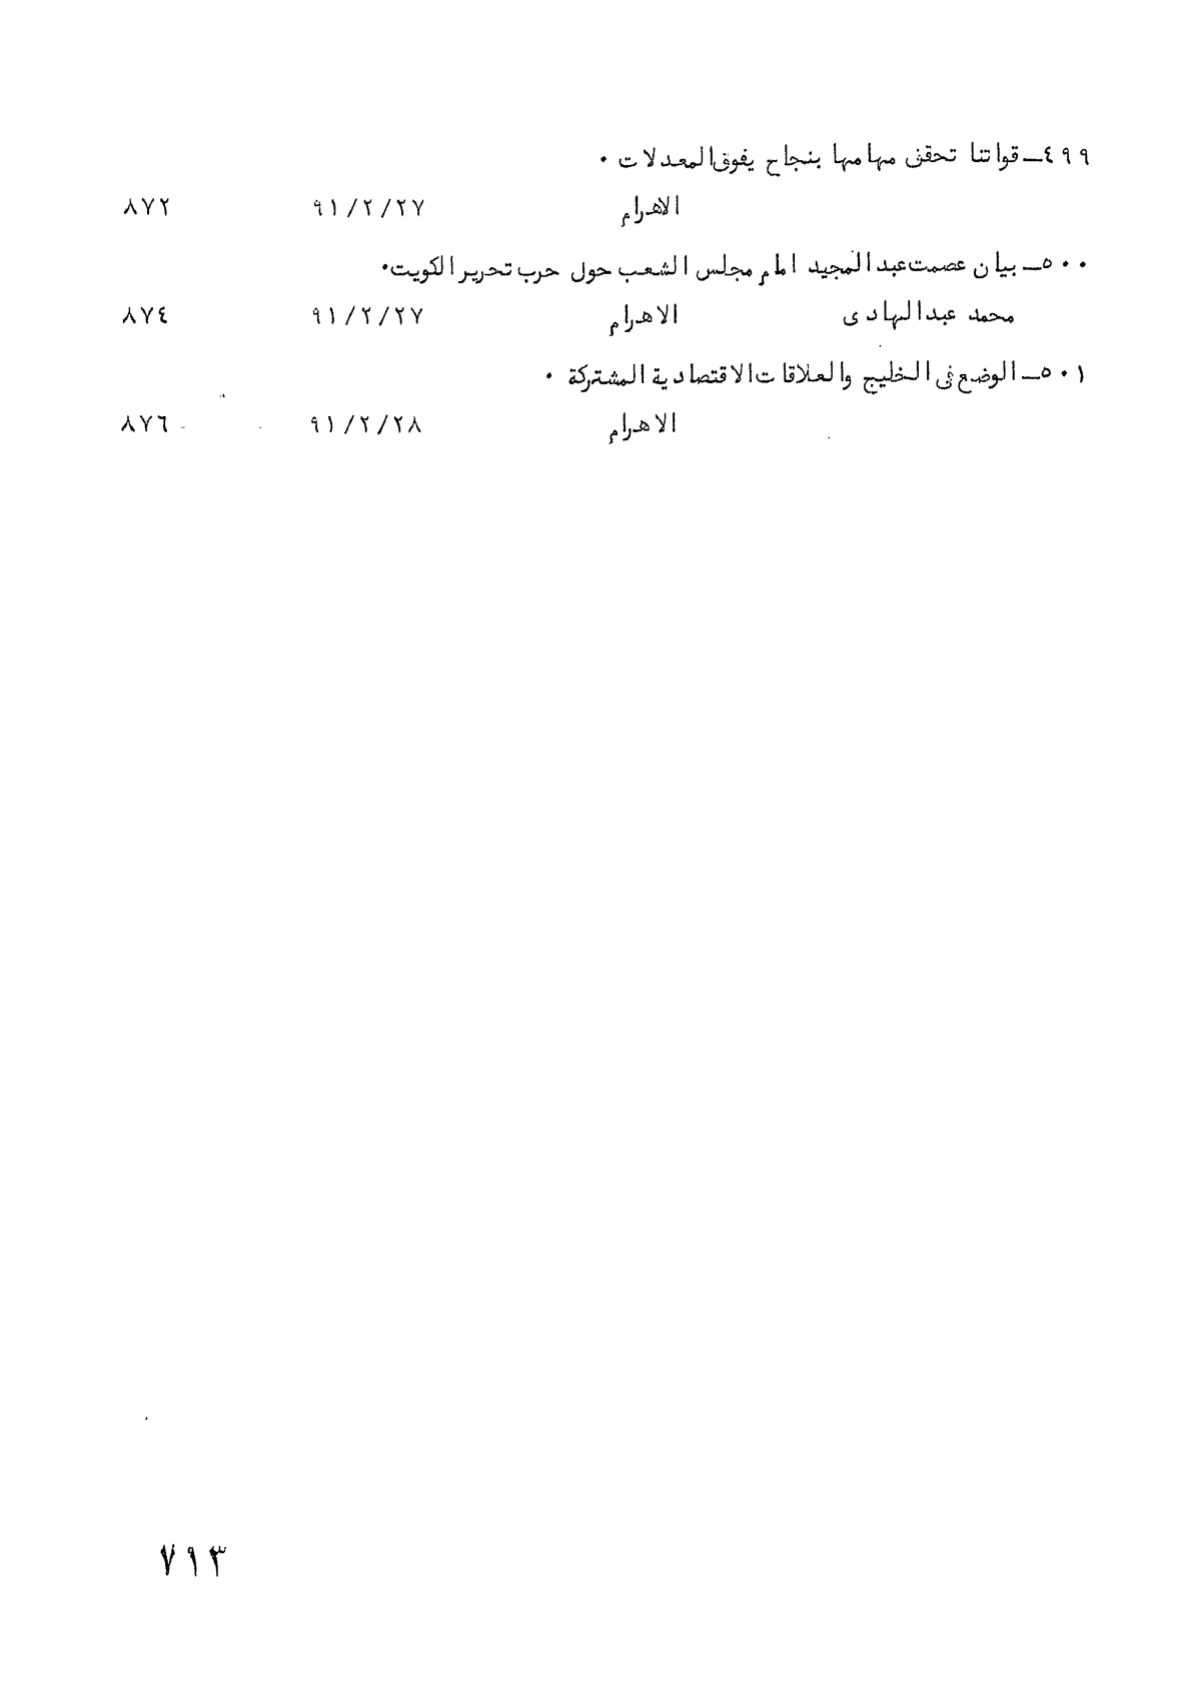 ٤٩٩ـ قواتنا تحقق مهامها بنجاح يفوق المعدلات ٠
الاهرام ٩١/٢/٢٧ ٨٧٢
٥٠٠ـ بيان عصمت عبد المجيد امام مجلس الشعب حول حرب تحرير الكويت٠
محمد عبد الهادى الاهرام ٩١/٢/٢٧ ٨٧٤
٥٠١ـ الوضع فى الخليج والعلاقات الاقتصادية المشتركة ٠
الاهرام ٩١/٢/٢٨ ٨٧٦
٧١٣